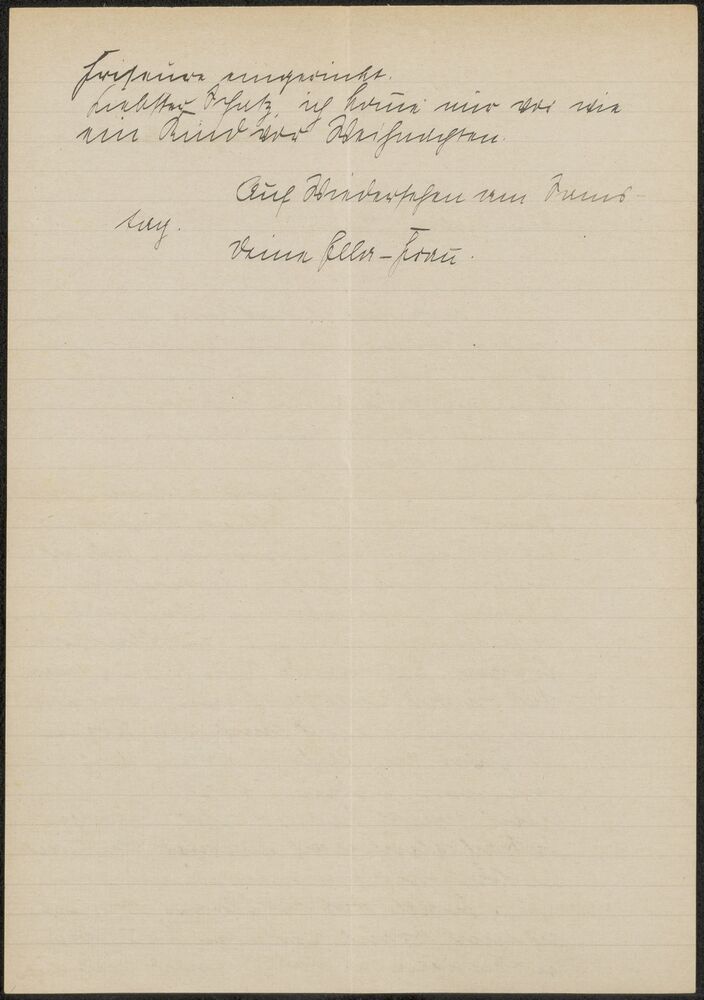 Friseure eingerückt.
Liebster Schatz, ich kom̄e mir vor wie
ein Kind vor Weihnachten.
Auf Wiedersehen am Sams-
tag.
Deine Ella-Frau.